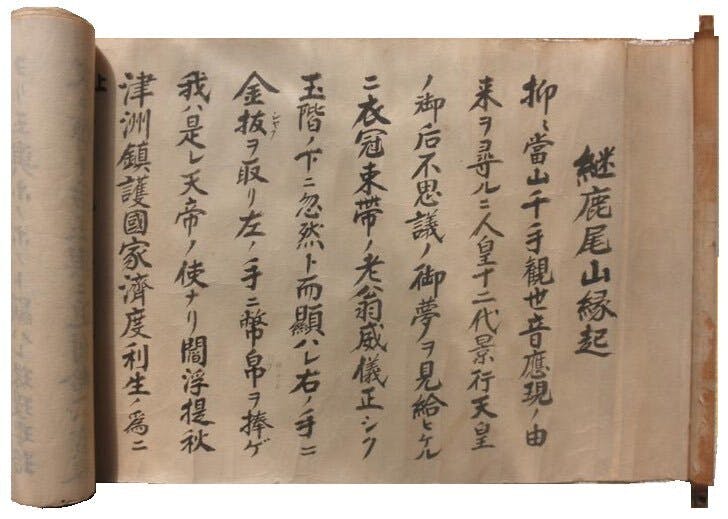 継鹿尾山縁起
抑〻當山千手観世音應現ノ由
来ヲ尋ルニ人皇十二代景行天皇
ノ御后不思議ノ御夢ヲ見給ヒケル
ニ衣冠束帯ノ老翁威儀正シク
玉階ノ下ニ忽然ト而顯ハレ右ノ手ニ
金抜ヲ取リ左ノ手ニ幣帛ヲ捧ゲ
我ハ是レ天帝ノ使ナリ閻浮提秋
津洲鎮護國家濟度利生ノ爲ニ
上